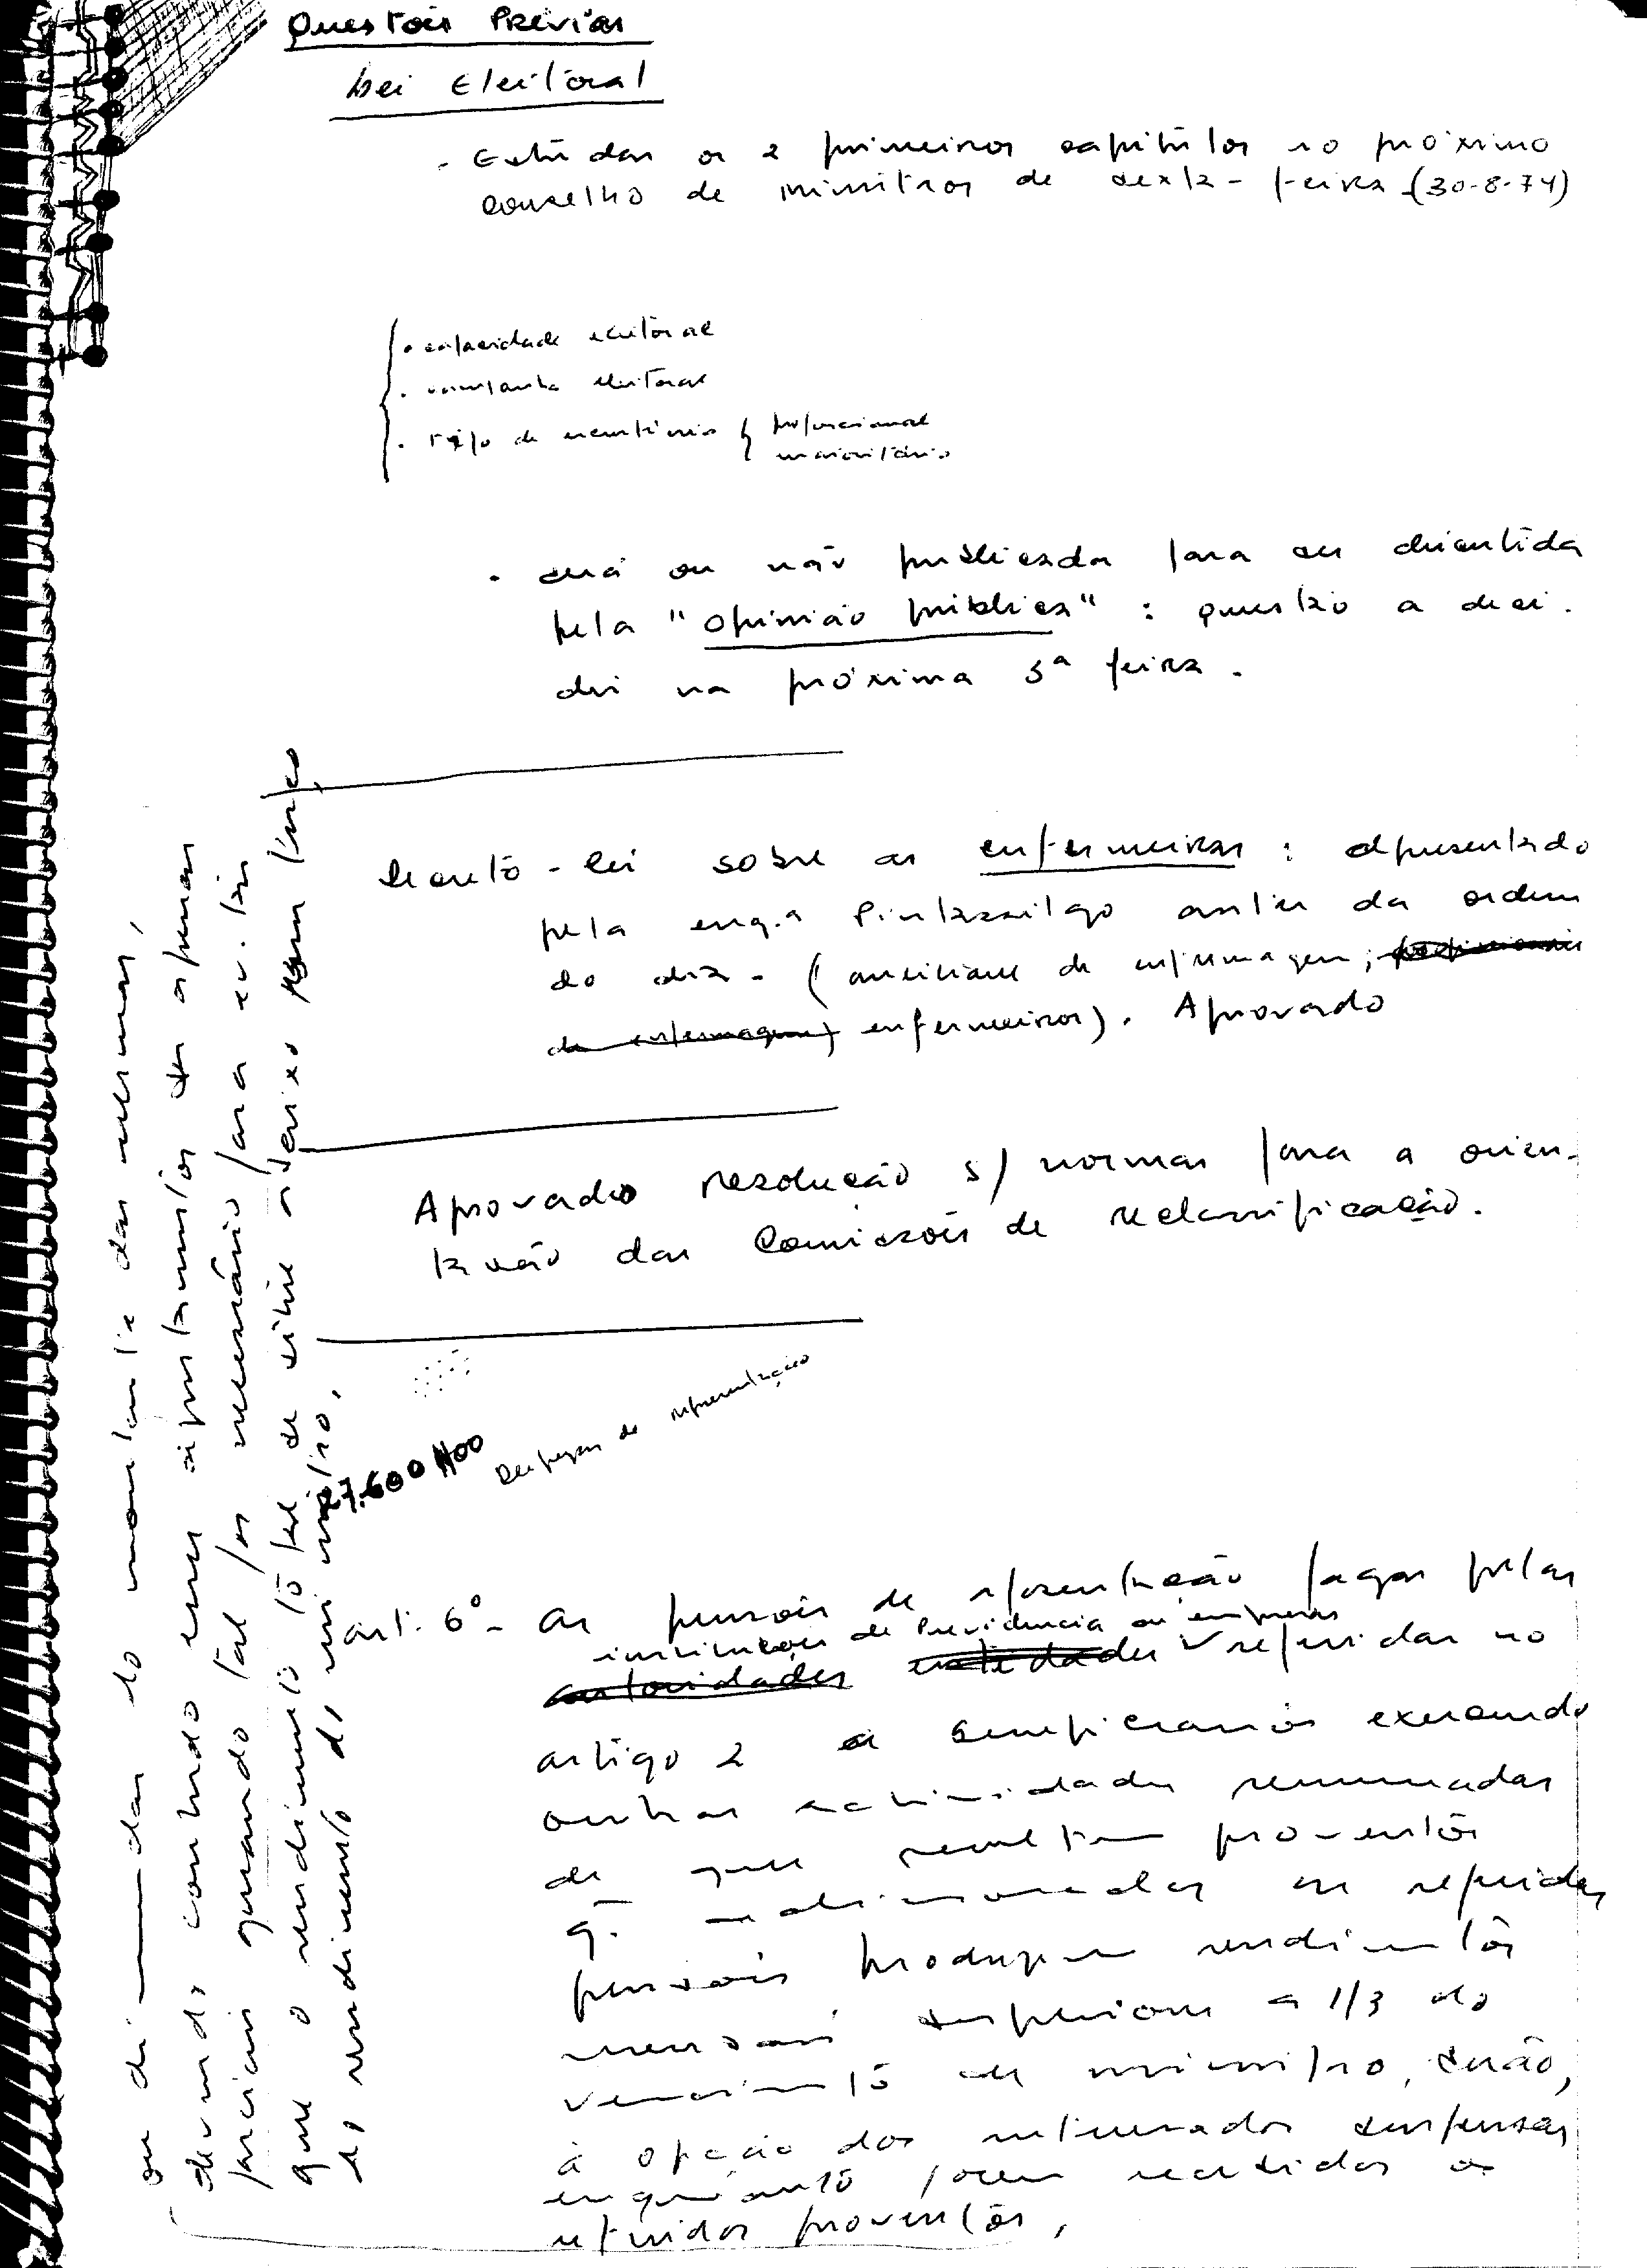 Questões Prévias
Lei Eleitoral
- Estudar os 2 primeiros capítulos no próximo
conselho de ministros de sexta-feira (30-8-74)
. capacidade eleitoral
. campanha eleitoral
. tipo de escrutínio { proporcional
maioritário
. será ou não publicada para ser discutida
pela "opinião pública" : questão a deci-
dir na próxima 5ª feira.
Decreto-lei sobre as enfermeiras : apresentado
pela eng.a Pintassilgo antes da ordem
do dia - (auxiliares de enfermagem; profissionais
de enfermagem) enfermeiros). Aprovado
Aprovado resolução s/ normas para a orien-
tação das Comissões de reclassificação.
27.600$00 Despesas de representação
art. 6º - As pensões de aposentação pagas pelas
instituições de Previdencia ou empresas
autoridades entidades referidas no
artigo 2 a beneficiarios exercendo
outras actividades remuneradas
de que resultem proventos
q. adicionados às referidas
pensões produzem rendimentos
mensais superiores a 1/3 do
vencimento de ministro, serão,
à opção dos interessados suspensas
enquanto forem recebidos os
referidos proventos,
ou diminuidas do montante das mesmas,
devendo contudo esses ajustamentos ser apenas
parciais quando tal for necessário para evitar
que o rendimento total de estire abaixo
do rendimento do ministro.